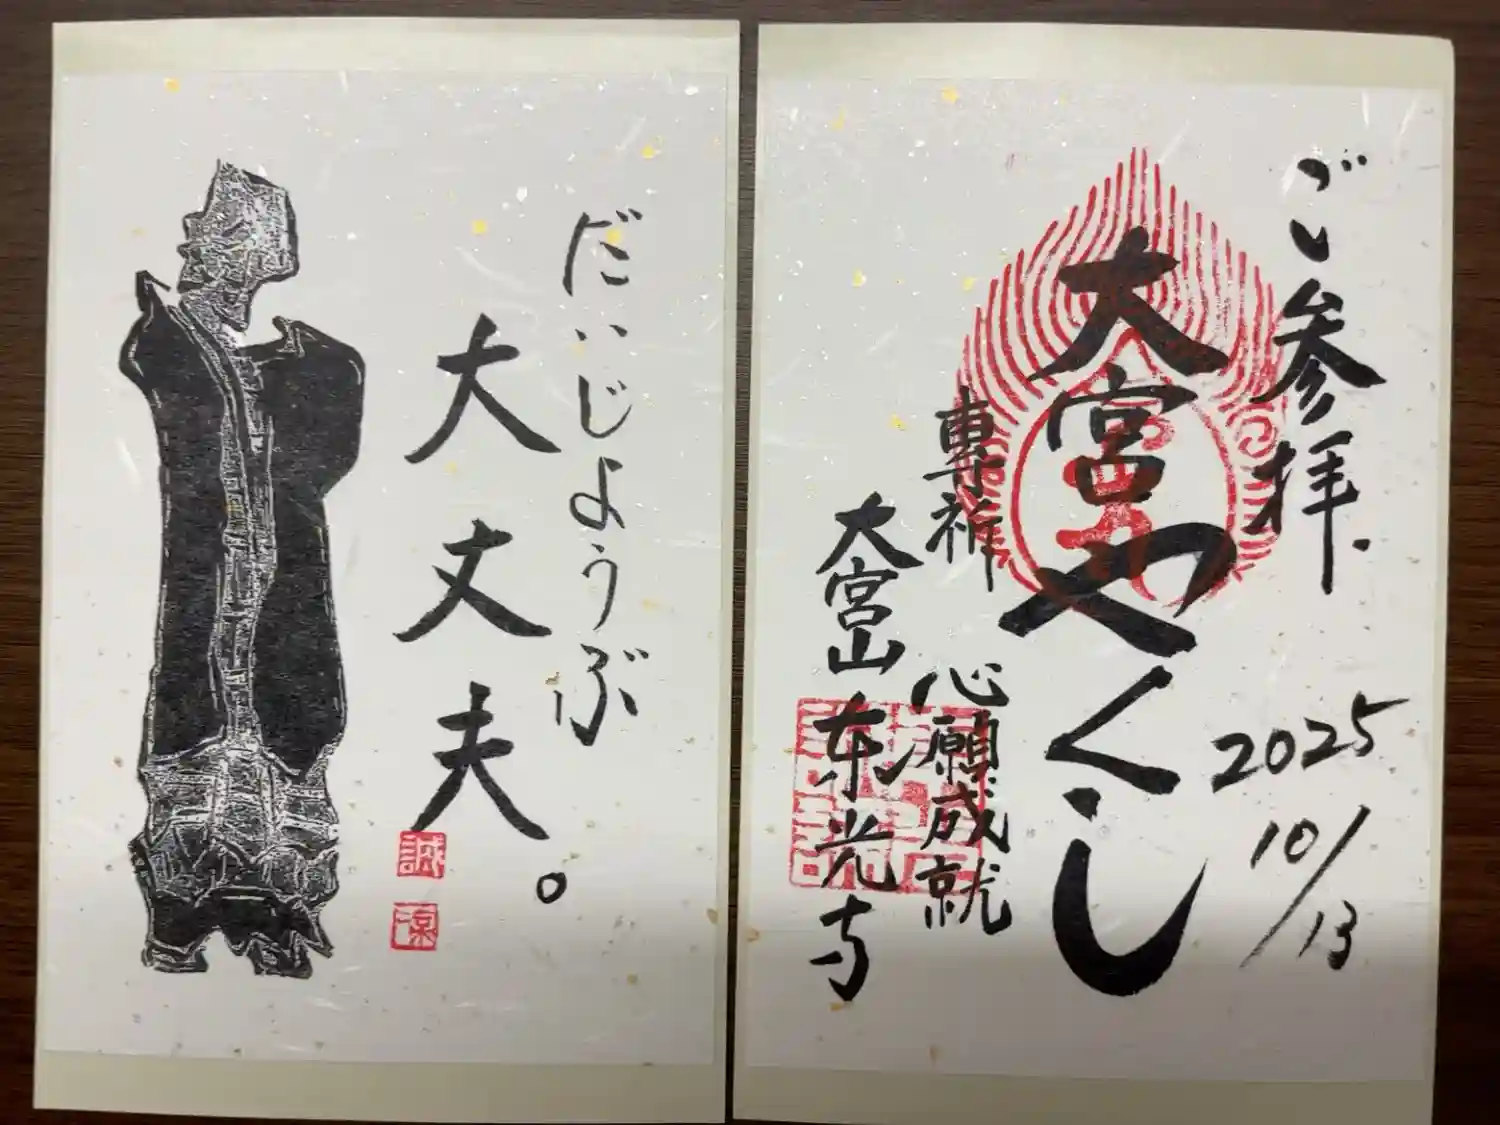 だいじょうぶ
大丈夫。
誠
ご参拝.
2025
10/13
大宮やくし
專祈
心願成就
大宮山東光寺